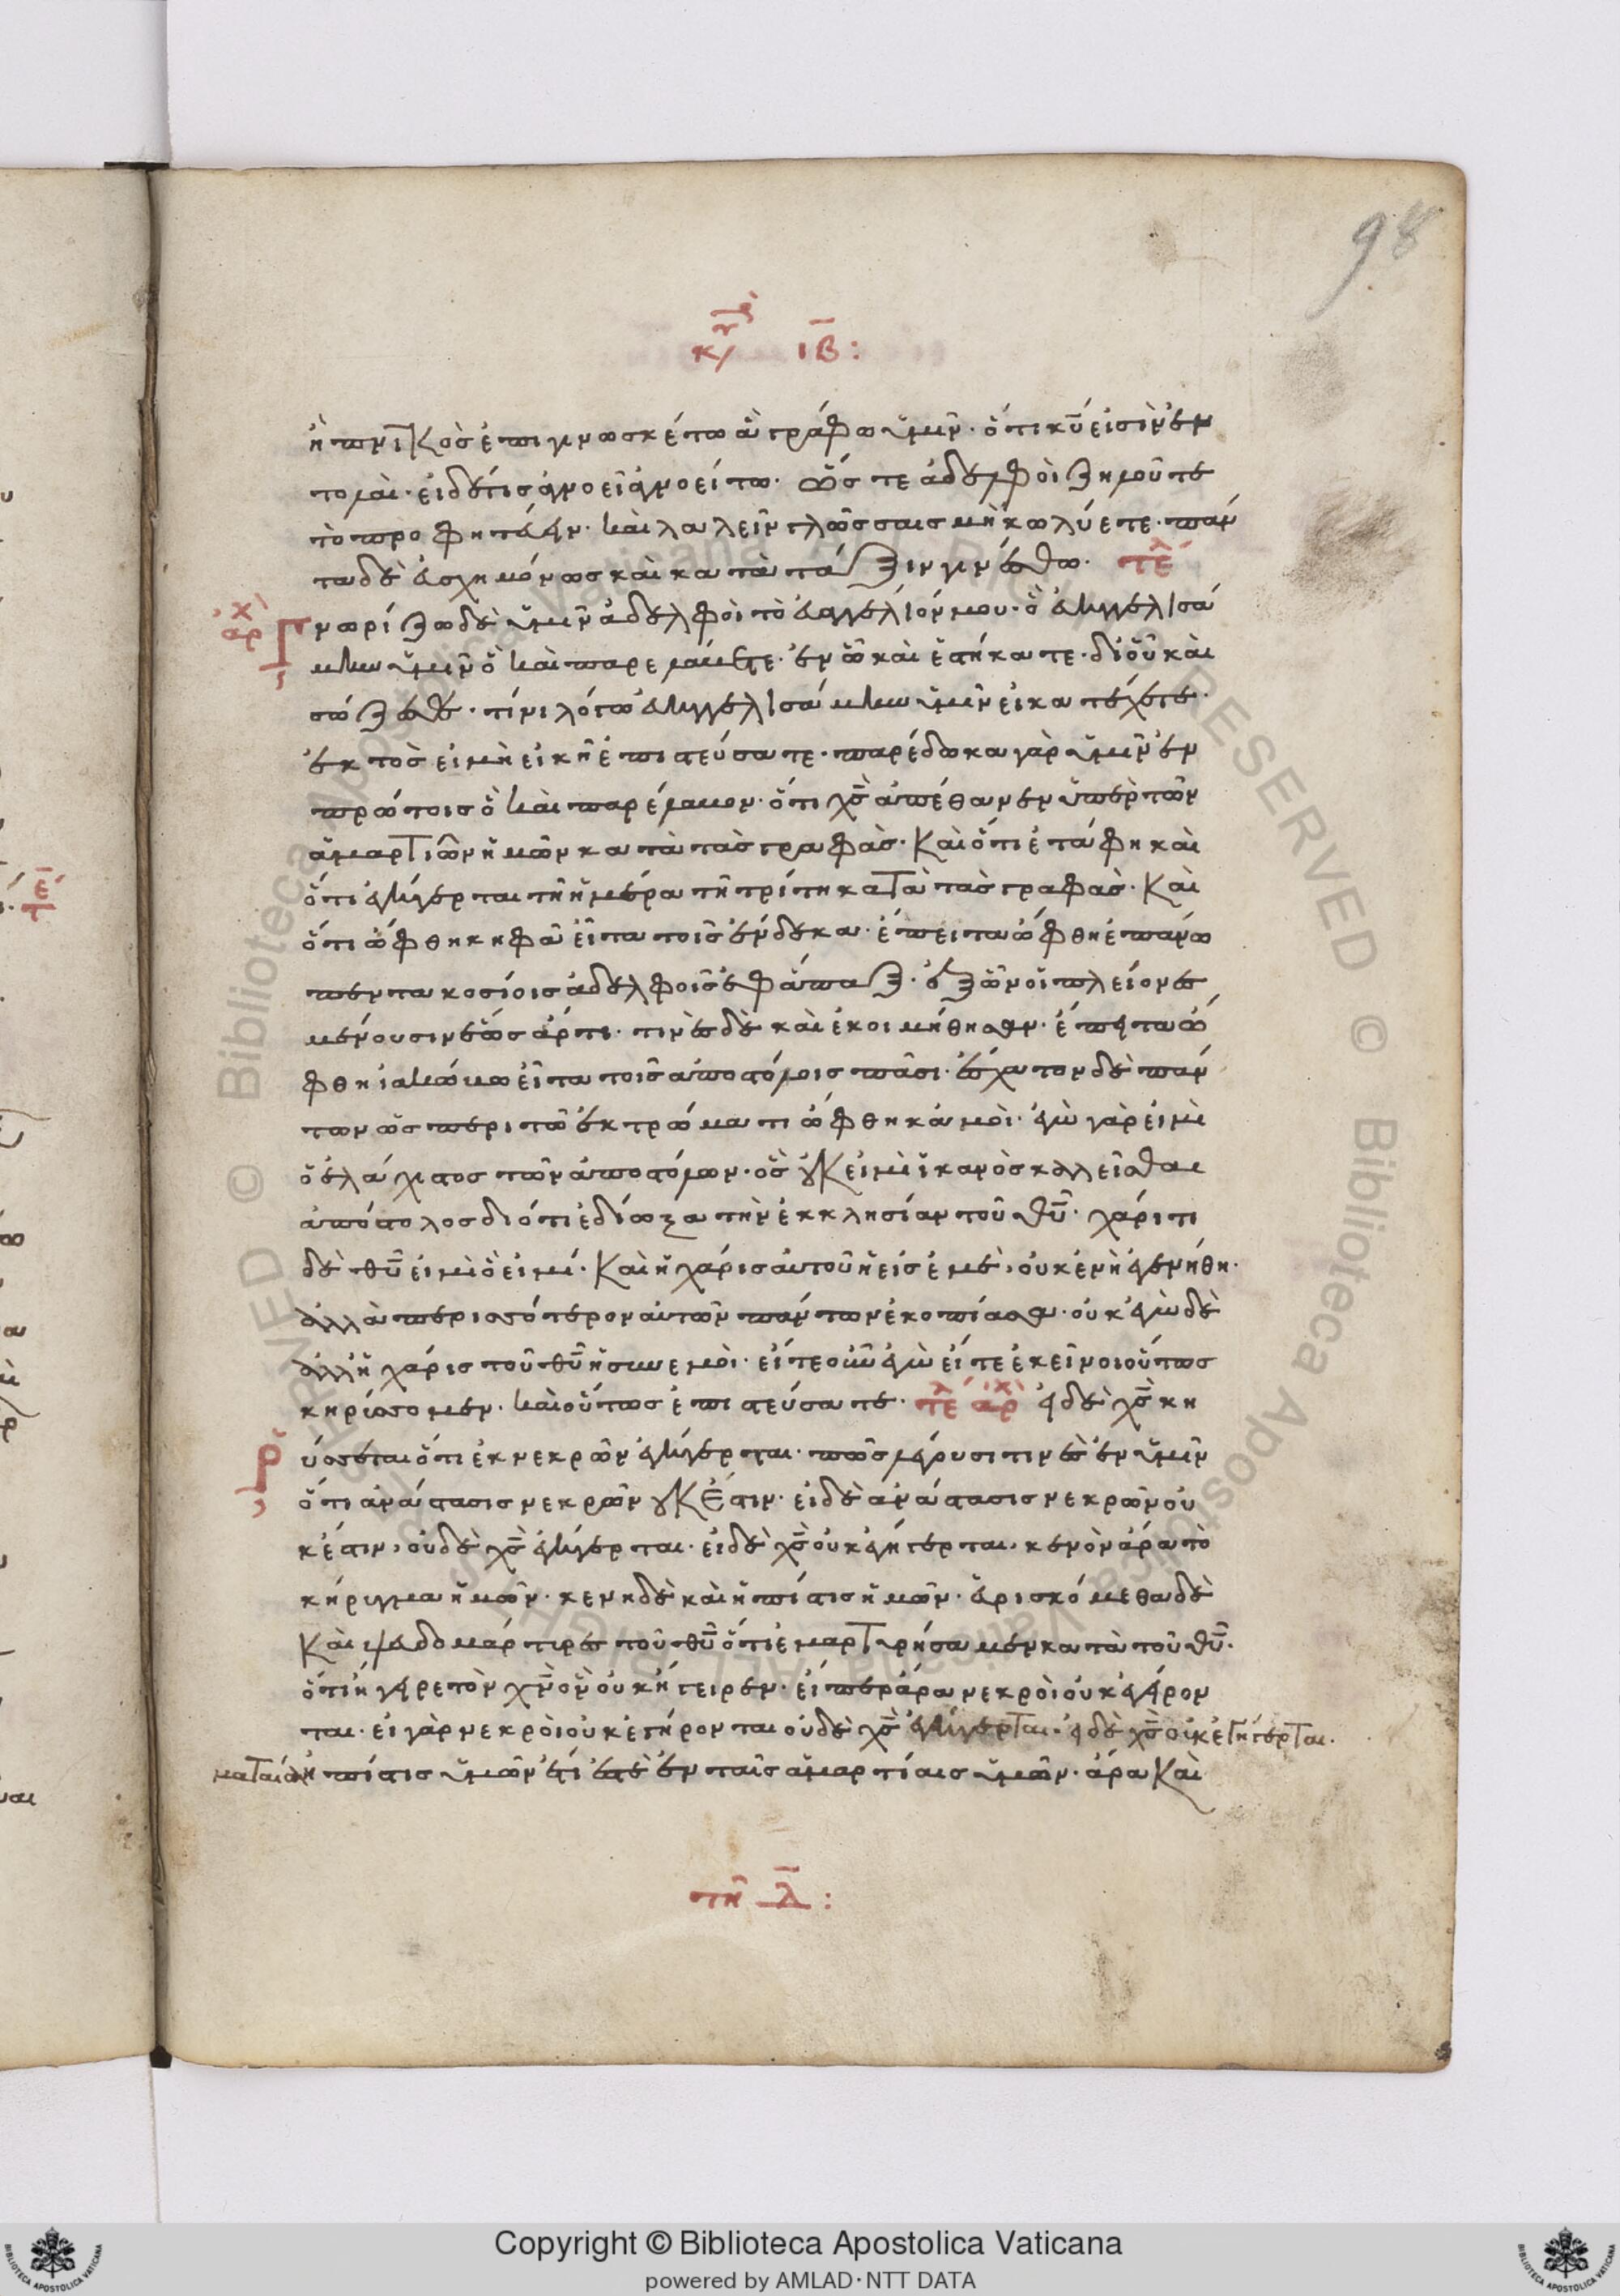 98
κυ ιβ:
ἢ πνικὸς ἐπιγνωσκέτω ἃ γράφω ὑμῖν· ὅτι κυ εἰσὶν ἐν
τολαὶ· εἰ δέ τις ἀγνοεῖ ἀγνοείτω· ὥστε ἀδελφοὶ ζηλοῦτε
τὸ προφητεύειν· καὶ λαλεῖν γλώσσαις μὴ κωλύετε· πάν
τα δὲ εὐσχημόνως καὶ κατὰ τάξιν γινέσθω· τέλ
αρχ Γνωρίζω δὲ ὑμῖν ἀδελφοὶ τὸ εὐαγγέλιόν μου· ὃ εὐηγγελισά
μην ὑμῖν ὃ καὶ παρελάβετε· ἐν ᾧ καὶ ἑστήκατε· δι οὗ καὶ
σώζεσθε· τίνι λόγω εὐηγγελισάμην ὑμῖν εἰ κατέχετε·
ἐκτὸς εἰ μὴ εἰκῆ ἐπιστεύσατε· παρέδωκα γὰρ ὑμῖν ἐν
πρώτοις ὃ καὶ παρέλαβον· ὅτι χς ἀπέθανεν ὑπὲρ τῶν
ἁμαρτιῶν ἡμῶν κατὰ τὰς γραφὰς· Καὶ ὅτι ἐτάφη καὶ
ὅτι ἐγήγερται τῇ ἡμέρα τῇ τρίτη κατὰ τὰς γραφὰς· Καὶ
ὅτι ὤφθη κηφᾶ εἶτα τοῖς ἕνδεκα· ἔπειτα ὤφθη ἐπάνω
πεντακοσίοις ἀδελφοῖς ἐφάπαξ· ἐξ ὧν οἱ πλείονες
μένουσιν ἕως ἄρτι· τινὲς δὲ καὶ ἐκοιμήθησαν· ἔπειτα ὤ
φθη ἰακώβω εἶτα τοῖς ἀποστόλοις πᾶσι· ἔσχατον δὲ πάν
των ὡσπερι τῶ ἐκτρώματι ὤφθη κάμοὶ· ἐγὼ γὰρ εἰμὶ
ὁ ἐλάχιστος τῶν ἀποστόλων· ὃς οὐκ εἰμὶ ἱκανὸς καλλεῖσθαι
ἀπόστολος διότι ἐδίωξα τὴν ἐκκλησίαν τοῦ θυ· χάριτι
δὲ θυ εἰμὶ ὅ εἰμί· Καὶ ἡ χάρις αὐτοῦ ἡ εἰς ἐμὲ, οὐ κενὴ ἐγενήθη·
ἀλλὰ περισσότερον αὐτῶν πάντων ἐκοπίασα· οὐκ ἐγὼ δὲ
ἀλλ ἡ χάρις τοῦ θυ ἡ συν ἐμοὶ· εἴτε οὖν ἐγὼ εἴτε ἐκεῖνοι οὕτως
κηρύσσομεν· καὶ οὕτως ἐπιστεύσατε· τέλ αρχ εἰ δὲ χς κη
ρύσσεται ὅτι ἐκ νεκρῶν ἐγήγερται· πῶς λέγουσι τινὲς ἐν ὑμῖν
ὅτι ἀνάστασις νεκρῶν οὐκ ἔστιν· εἰ δὲ ἀνάστασις νεκρῶν οὐ
κ ἔστιν, οὐδὲ χς ἐγήγερται· εἰ δὲ χς οὐκ ἐγήγερται, κενὸν ἄρα τὸ
κήρυγμα ἡμῶν· κενη δὲ καὶ ἡ πίστις ἡμῶν· εὑρισκόμεθα δὲ
Καὶ ψευδομάρτυρες τοῦ θυ ὅτι ἐμαρτυρήσαμεν κατὰ τοῦ θυ·
ὅτι ἤγειρε τὸν χν ὃν οὐκ ἤγειρεν· εἴπερ ἄρα νεκροὶ οὐκ ἐγείρον
ται· εἰ γὰρ νεκροὶ οὐκ ἐγήρονται οὐδὲ χς ἐγήγερται· εἰ δὲ χς οὐκ ἐγήγερται·
ματαία ἡ πίστις ὑμῶν ἔτι ἐστὲ ἐν ταῖς ἁμαρτίαις ὑμῶν· ἄρα Καὶ
τῇ λ:
Copyright © Biblioteca Apostolica Vaticana
powered by AMLAD·NTT DATA